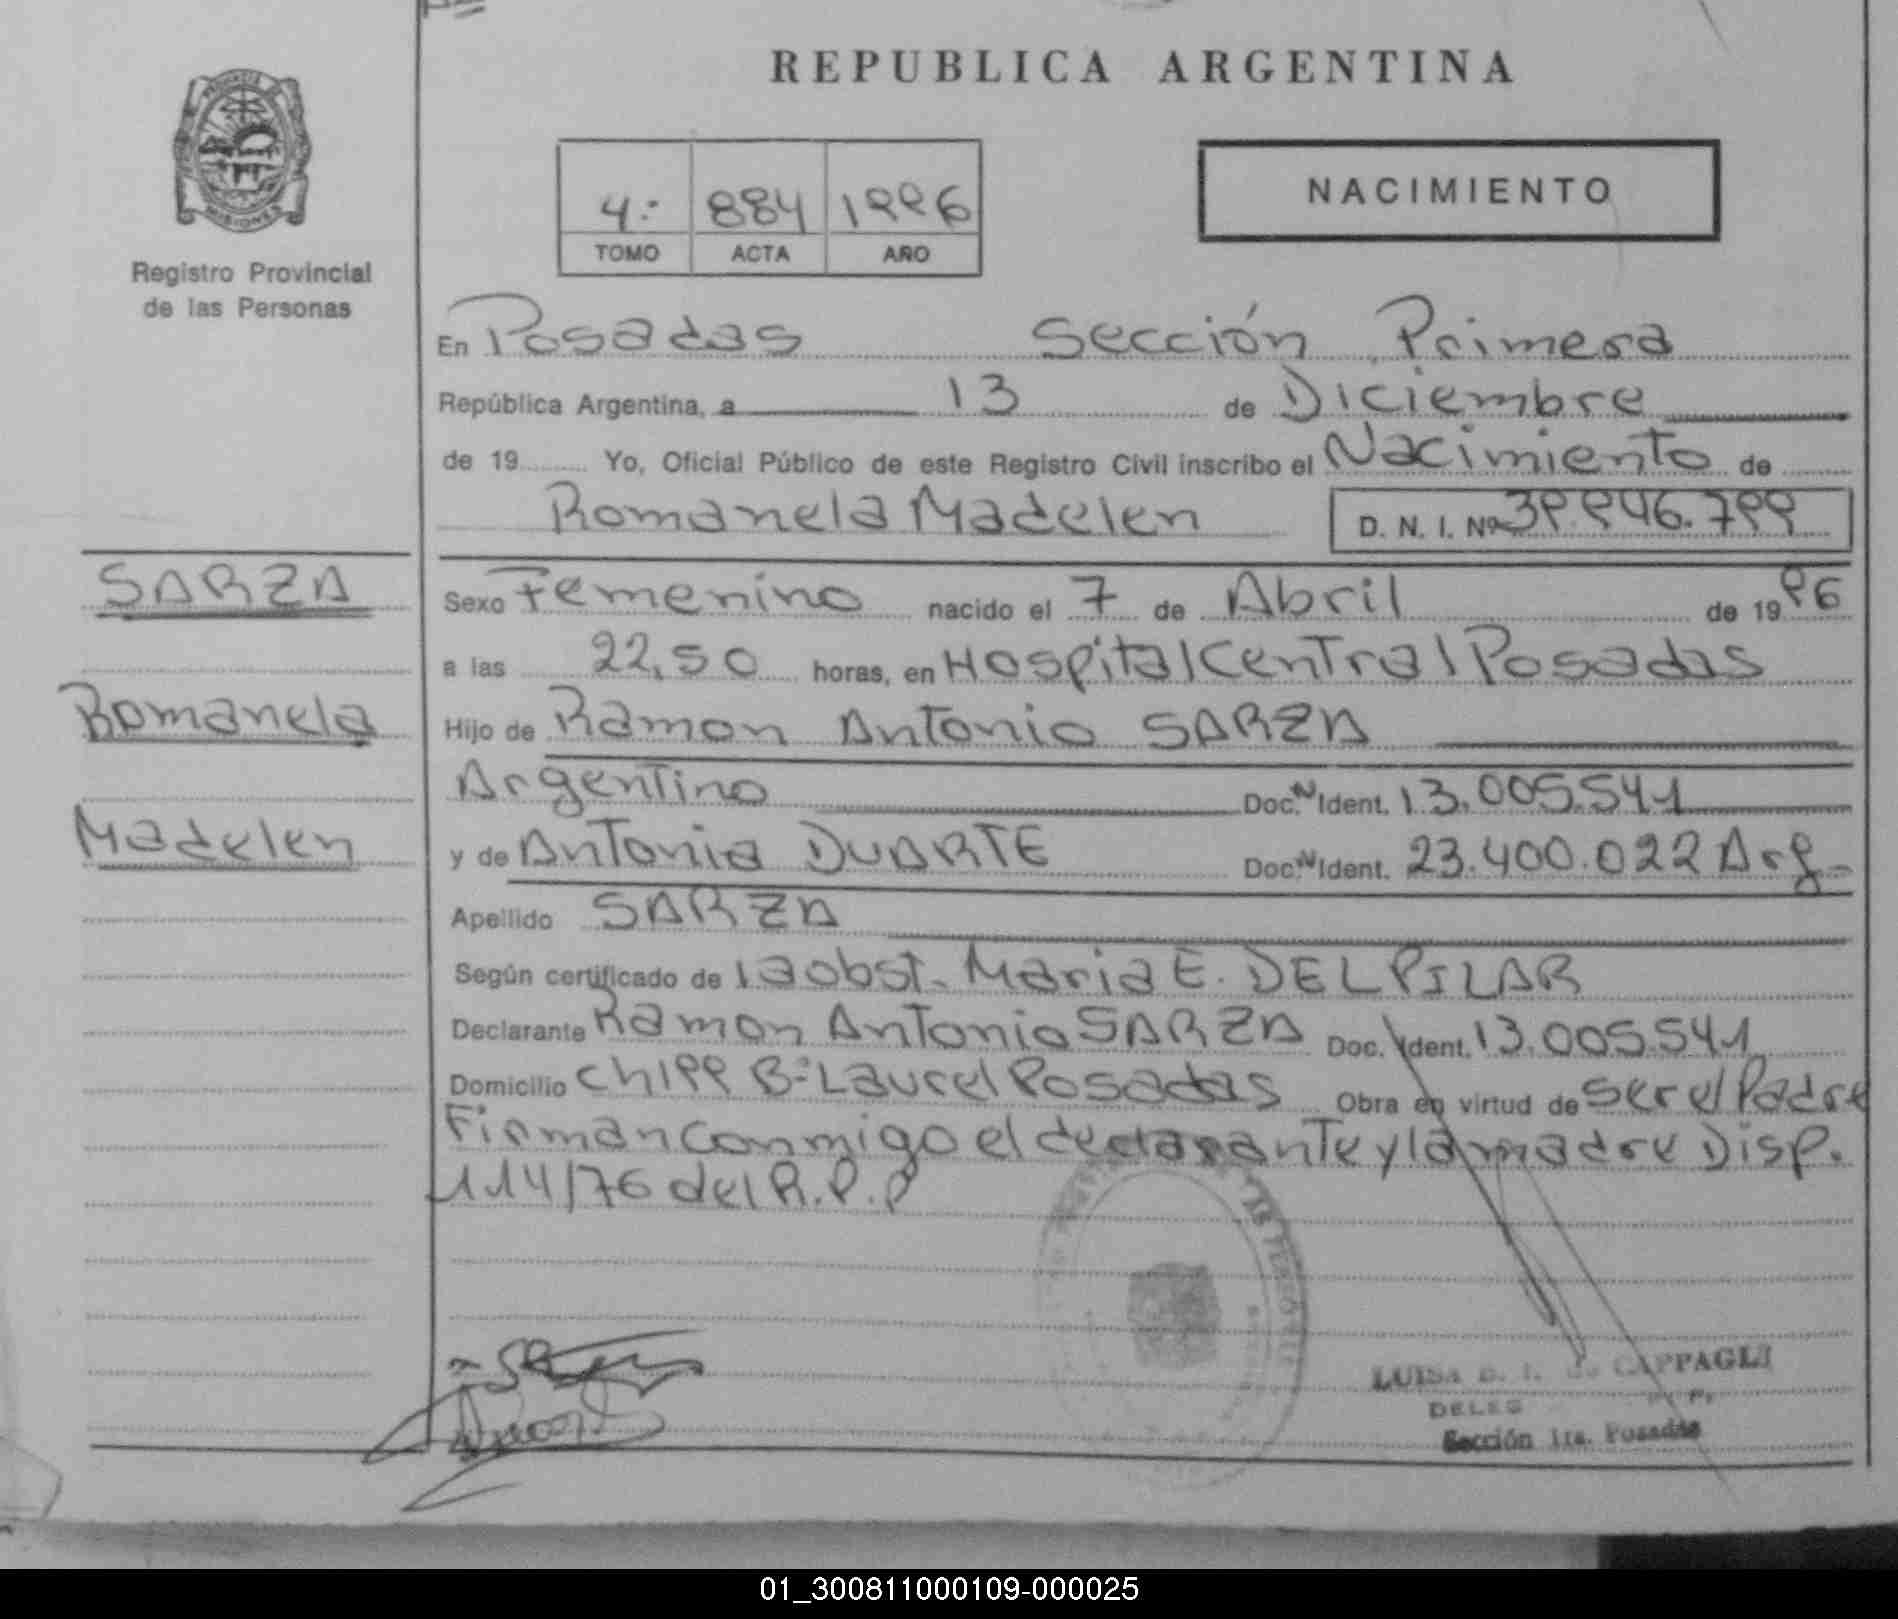 REPUBLICA ARGENTINA
PROVINCIA MISIONES
4º 884 1996
NACIMIENTO
TOMO ACTA AÑO
Registro Provincial
de las Personas
En Posadas Sección Primera
República Argentina, a 13 de Diciembre
de 19 Yo, Oficial Público de este Registro Civil inscribo el Nacimiento de
Romanela Madelen D. N. I. Nº 39.946.799
SARZA
Romanela
Madelen
Sexo Femenino nacido el 7 de Abril de 1996
a las 22,50 horas, en Hospital Central Posadas
Hijo de Ramon Antonio SARZA
Argentino Doc. N Ident. 13.005.541
y de Antonia DUARTE Doc. N Ident. 23.400.022 Arg.
Apellido SARZA
Según certificado de la obst. Maria E. DEL PILAR
Declarante Ramon Antonio SARZA Doc. Ident. 13.005.541
Domicilio Ch 199 Bº Laurel Posadas Obra en virtud de ser el Padre
Firman conmigo el declarante y la madre Disp.
114/76 del R.P.P
LUISA CAPPAGLI
DELEG
Sección 1ra. Posadas
01_300811000109-000025